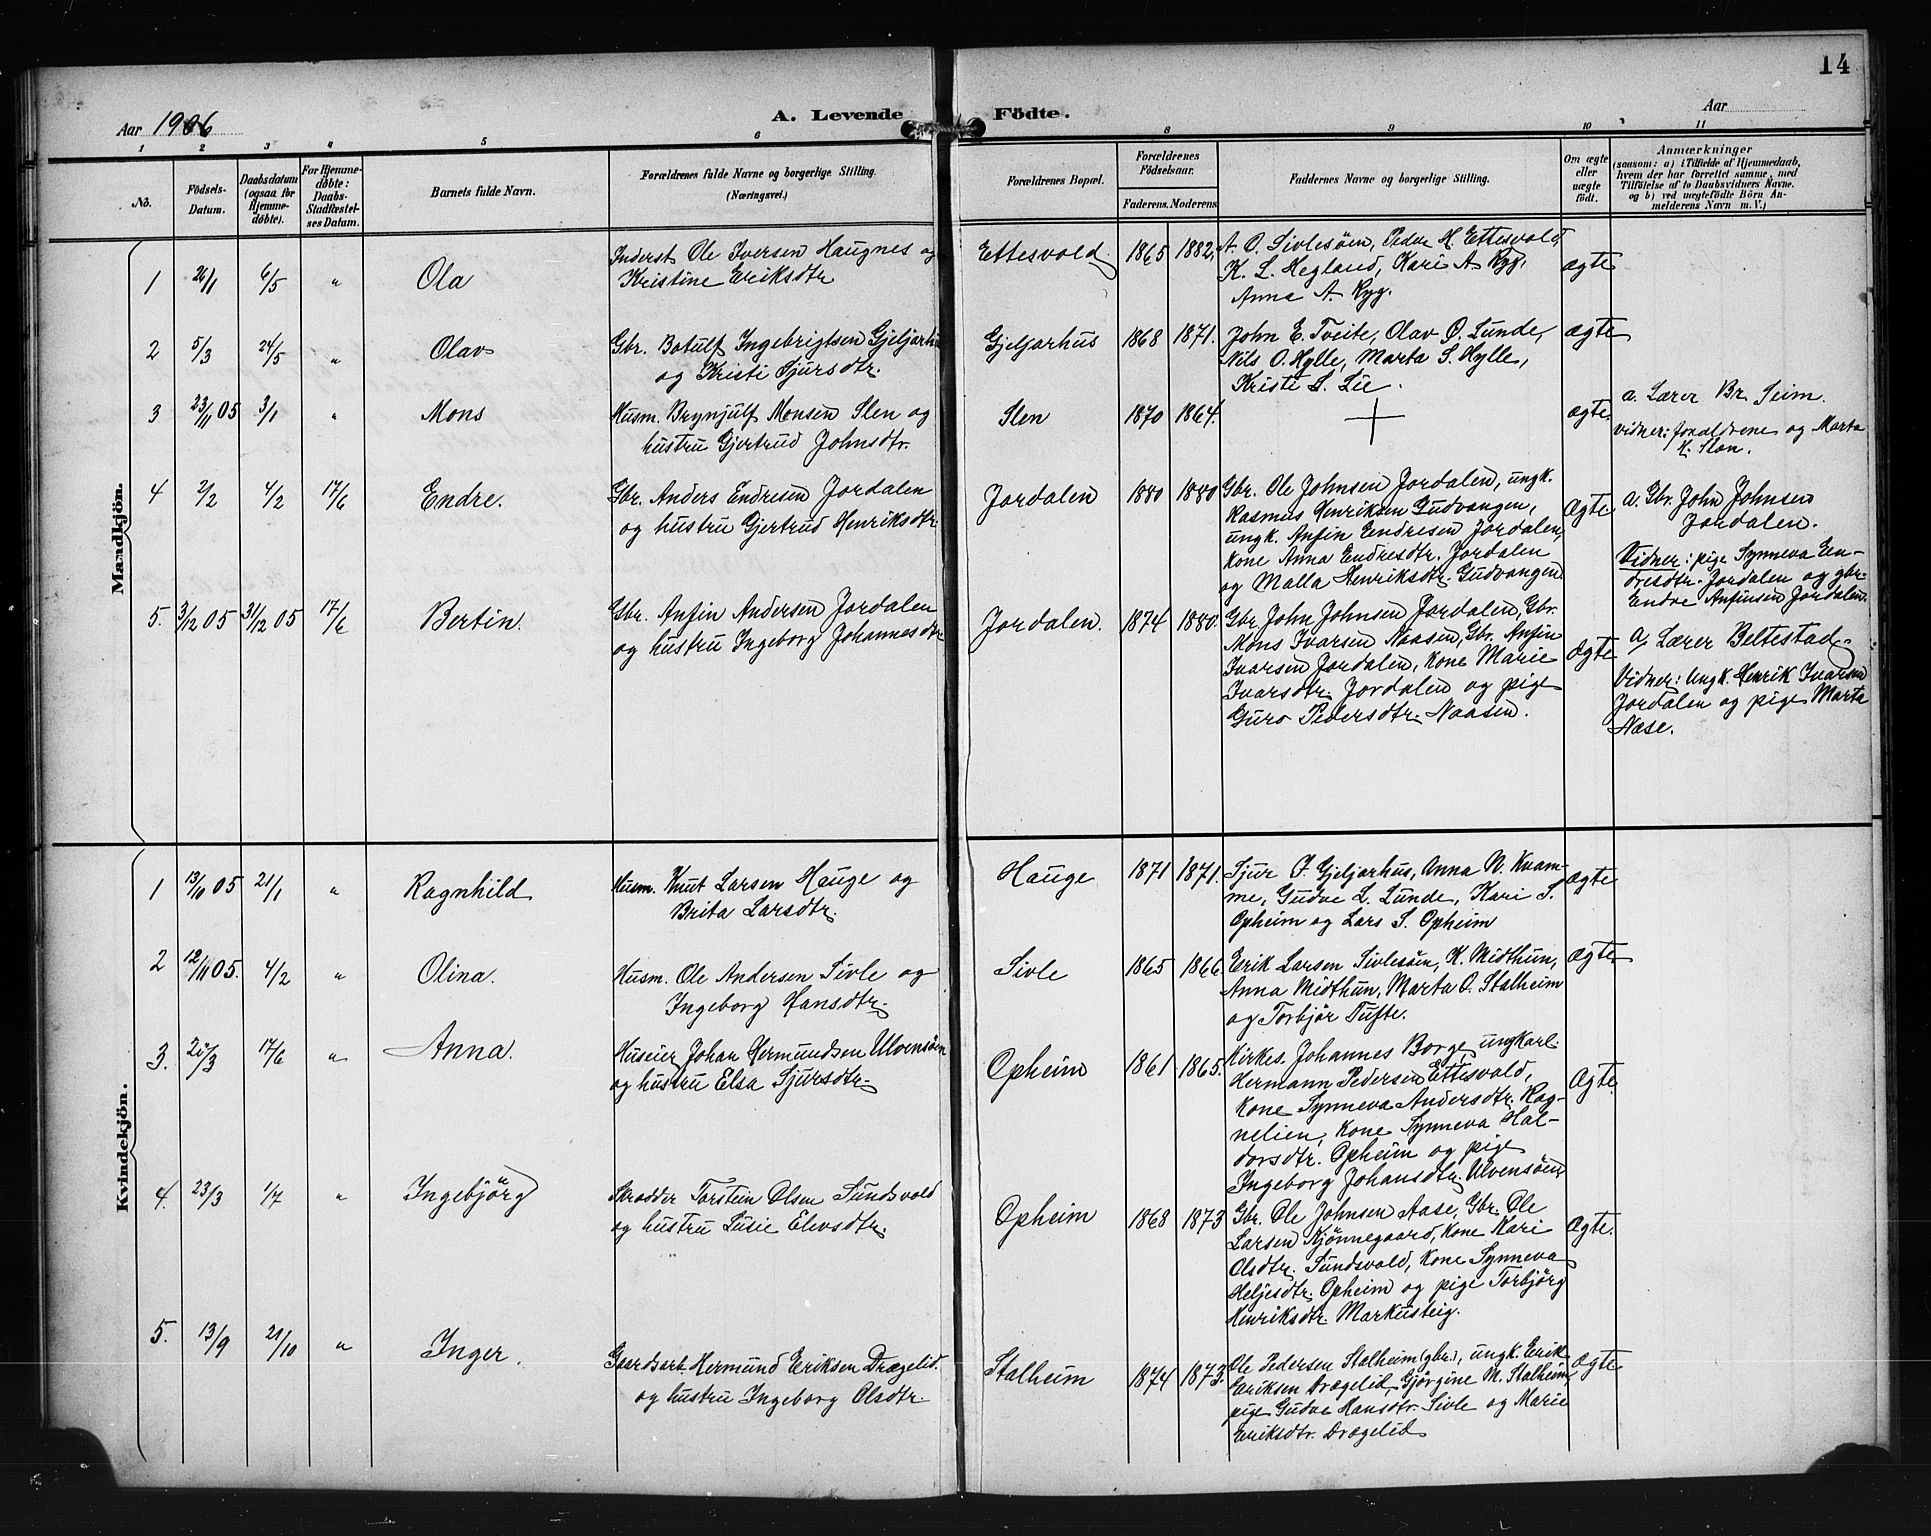 14
Aar 1906
A. Levende Födte.
Aar
1 2 3 4 5 6 8 9 10 11
No.
Födsels-Datum.
Daabsdatum (ogsaa for Hjemmedöbte).
For Hjemmedöbte: Daabs-Stadfæstelses Datum.
Barnets fulde Navn.
Forældrenes fulde Navne og borgerlige Stilling.
(Næringsvei.)
Forældrenes Bopæl.
Forældrenes Födselsaar.
Faderens. Moderens.
Faddernes Navne og borgerlige Stilling.
Om ægte eller uægte födt.
Anmærkninger
(saasom: a) i Tilfælde af Hjemmedaab,
hvem der har forrettet samme, med
Tilföielse af to Daabsvidners Navne.
og b) ved uægtefödte Börn An-
melderens Navn m. V.)
Mandkjön.
1 26/1 6/5 " Ola
Inderst Ole Iversen Haugnes og
Kristine Eriksdtr
Ettesvold 1865 1882
A. O. Sivlesöen, Peder H. Ettesvold,
K. L. Hegland, Kari A. Ryg,
Anna A. Ryg.
ægte
2 5/3 24/5 " Olav
Gbr. Botulf Ingebrigtsen Gjeljarhus
og Kristi Sjursdtr.
Gjeljarhus 1868 1871.
John E. Tveite, Olav O. Lunde,
Nils O. Hylle, Marta S. Hylle,
Kristi S. Lie.
ægte
3 23/11 05 3/1 " Mons
Husm. Brynjulf Monsen Slen og
hustru Gjertrud Johnsdtr.
Slen 1870 1864.
+
ægte
a. Lærer Br. Seim.
vidner: forældrene og Marta
K. Slen.
4 2/2 4/2 17/6 Endre.
Gbr. Anders Endresen Jordalen
og hustru Gjertrud Henriksdtr.
Jordalen 1880 1880
Gbr. Ole Johnsen Jordalen, ungk.
Rasmus Henriksen Gudvangen,
ungk. Anfin Endresen Jordalen,
kone Anna Endresdtr. Jordalen
og Malla Henriksdtr. Gudvangen
Ægte
a. Gbr. John Johnsen
Jordalen.
Vidner: pige Synneva En-
dresdtr. Jordalen og gbr.
Endre Anfinsen Jordalen.
5. 3/12 05 31/12 05 17/6 Bertin.
Gbr. Anfin Andersen Jordalen
og hustru Ingeborg Johannesdtr
Jordalen. 1874 1880.
Gbr. John Johnsen Jordalen, Gbr.
Mons Ivarsen Naasen, Gbr. Anfin
Ivarsen Jordalen, kone Marie
Ivarsdtr. Jordalen og pige
Guro Pedersdtr. Naasen.
Ægte
a, Lærer Beltestad.
Vidner: Ungk. Henrik Ivarsen
Jordalen og pige Marta
Næse.
Kvindekjön.
1 13/11 05 21/1 " Ragnhild
Husm. Knut Larsen Hauge og
Brita Larsdtr.
Hauge 1871 1871.
Sjur J. Gjeljarhus, Anna N. Kvam-
me, Gudve L. Lunde, Kari S.
Opheim og Lars S. Opheim
ægte
2 12/11 05. 4/2 " Olina.
Husm. Ole Andersen Sivle og
Ingeborg Hansdtr.
Sivle 1865 1866.
Erik Larsen Sivlesöen, K. Midthun,
Anna Midthun, Marta O. Stalheim
og Torbjör Tufte.
Ægte
3. 25/3 17/6 " Anna.
Huseier Johan Hermundsen Ulvensöen
og hustru Elsa Sjursdtr.
Opheim 1861 1865.
Kirkes. Johannes Borge, ungkarl
Hermann Pedersen Ettesvold,
kone Synneva Andersdtr. Rog-
nelien, kone Synneva Hal-
dorsdtr. Opheim og pige
Ingeborg Johansdtr. Ulvensöen
Ægte.
4. 23/3 1/7 " Ingebjörg
Skrædder Torstein Olsen Sundsvold
og hustru Lusie Elevsdtr.
Opheim 1868 1873
Gbr. Ole Johnsen Aase, Gbr. Ole
Larsen Kjönnegaard, kone Kari
Olsdtr. Sundsvold, kone Synneva
Heljesdtr. Opheim og pige Torbjörg
Henriksdtr. Markusteig.
Ægte.
5. 13/9 21/10 " Inger.
Gaardsarb. Hermund Eriksen Drægelid.
og hustru Ingeborg Olsdtr.
Stalheim 1874 1873.
Ole Pedersen Stalheim (gbr.), ungk. Erik
Eriksen Drægelid, Gjörgine M. Stalheim,
pige Gudve Hansdtr. Sivle og Marie
Eriksdtr. Drægelid
Ægte